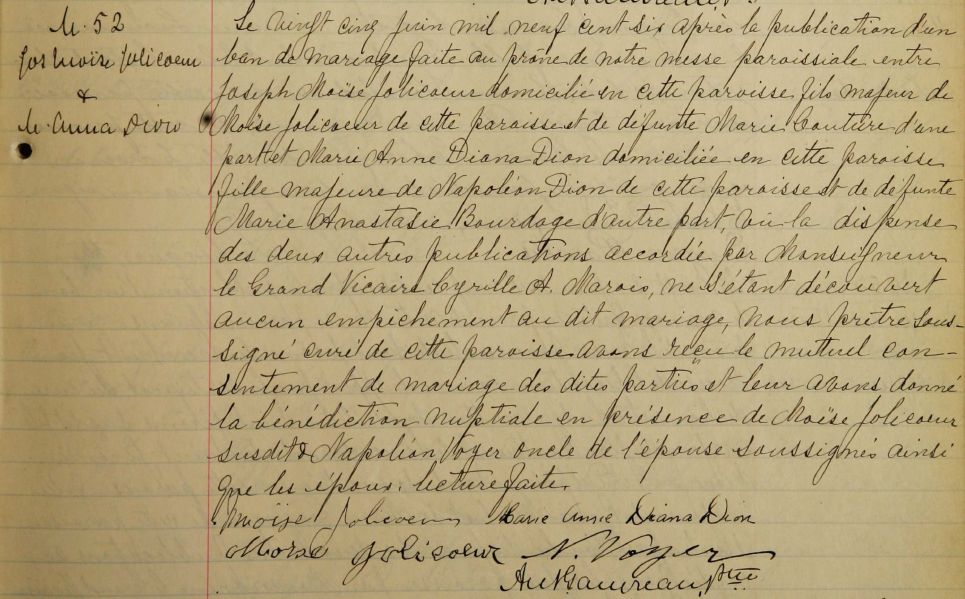 M. 52
Jos Moïse Jolicoeur
&
M. Anna Dion
Le vingt cinq juin mil neuf cent six après la publication d'un
ban de mariage faite au prône de notre messe paroissiale entre
Joseph Moïse Jolicoeur domicilié en cette paroisse fils majeur de
Moïse Jolicoeur de cette paroisse et de défunte Marie Couture d'une
part et Marie Anne Diana Dion domiciliée en cette paroisse
fille majeure de Napoléon Dion de cette paroisse et de défunte
Marie Anastasie Bourdage d'autre part, vu la dispense
des deux autres publications accordée par Monseigneur
le Grand Vicaire Cyrille A. Marois, ne s'étant découvert
aucun empêchement au dit mariage, nous prêtre sous-
signé curé de cette paroisse avons reçu le mutuel con-
sentement de mariage des dites parties et leur avons donné
la bénédiction nuptiale en présence de Moïse Jolicoeur
susdit & Napoléon Voyer oncle de l'épouse soussignés ainsi
que les époux. lecture faite.
Moïse Jolicoeur Marie Anne Diana Dion
Moïse Jolicoeur N. Voyer
Ptre